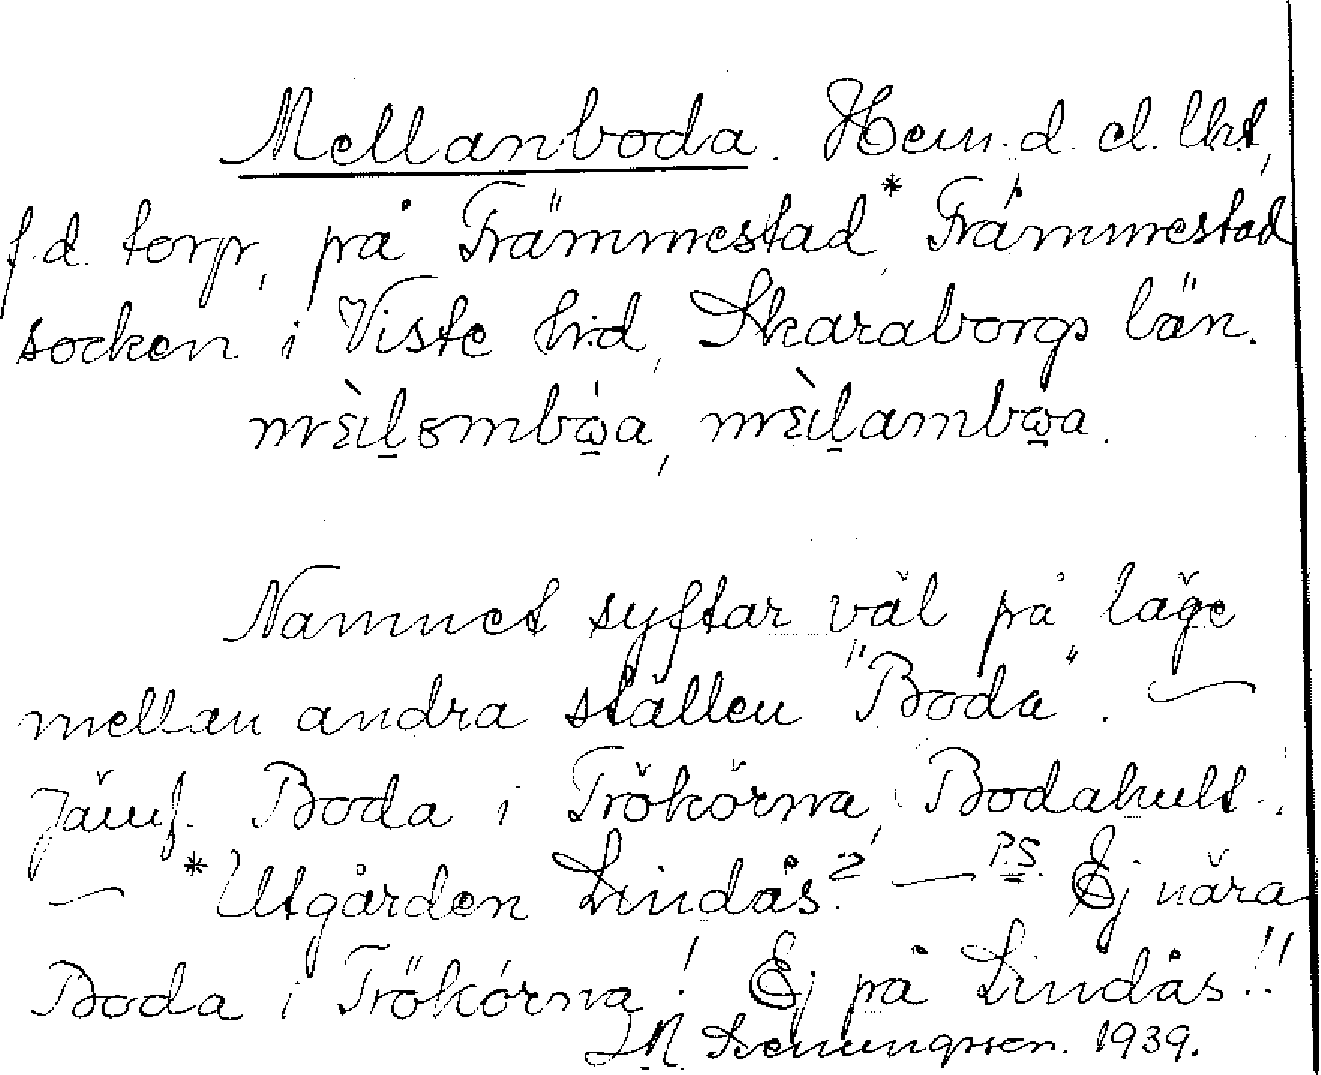 Mellanboda. Hem.d. el. lht,
f.d. torp, på Främmestad,* Främmestad
socken i Viste hd, Skaraborgs län.
mèıl̲ɞmbώ̲a, mèıl̲ambω̲a.
Namnet syftar väl på läge
mellan andra ställen "Boda". —
Jämf. Boda i Trökörna, Bodahult.
— *Utgården Lindås? — P.S. Ej nära
Boda i Trökörna! Ej på Lindås!!
1939.